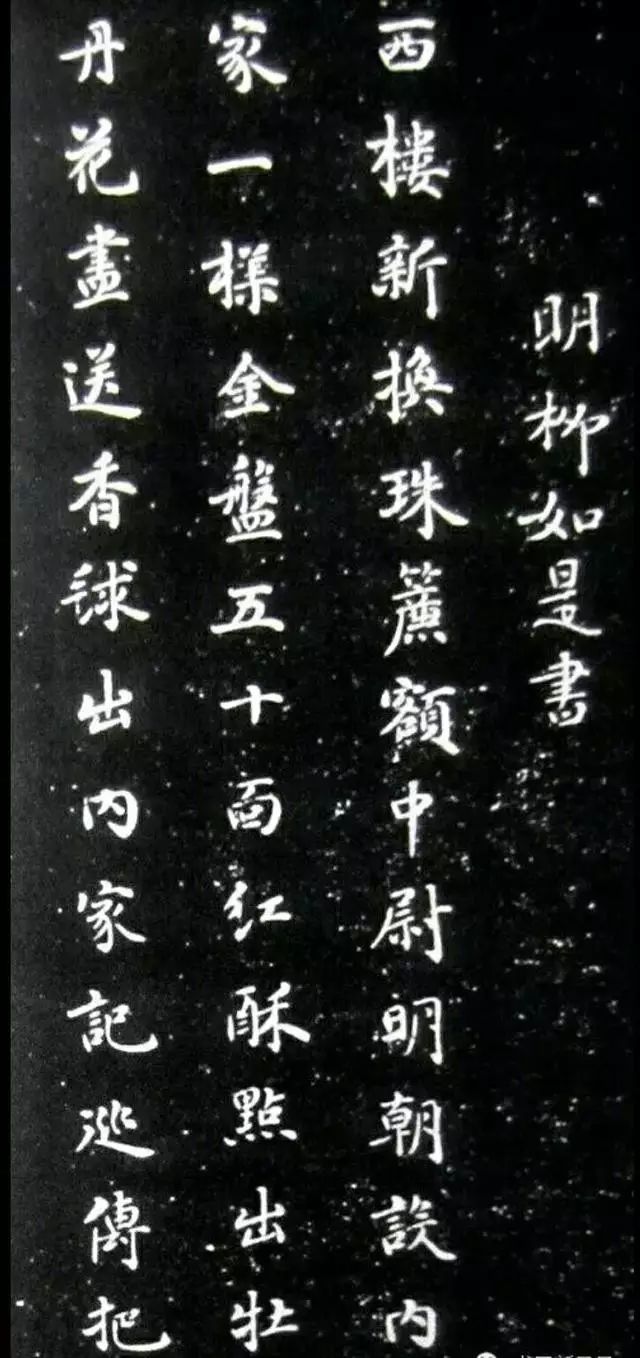 明柳如是書
西樓新換珠簾額中尉明朝設內
家一樣金盤五十面紅酥點出牡
丹花盡送香毬出內家記巡傳把